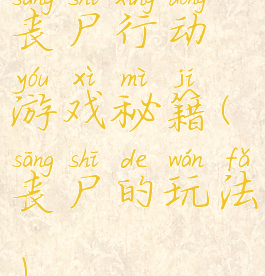 sāng shī xíng dòng
丧尸行动
yóu xì mì jí
游戏秘籍(
sāng shī de wán fǎ
丧尸的玩法
)